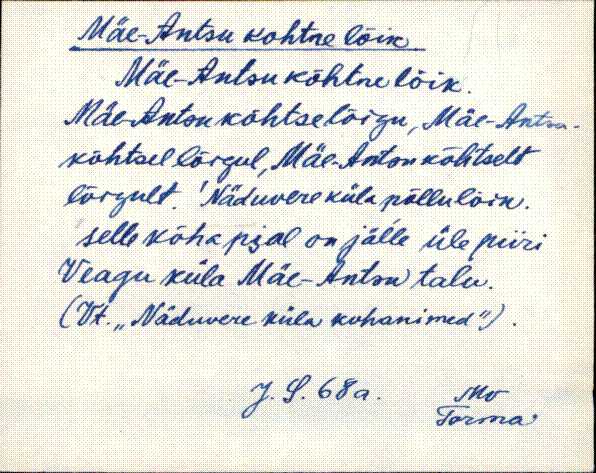 Mäe-Antsu kohtne lõik
Mäe-Antsu kõhtne lõik.
Mäe-Antsu kõhtse lõigu, Mäe-Antsu-
kõhtsel lõigul, Mäe-Antsu kõhtselt
lõigult. Näduvere küla põllulõik.
selle kõha pial on jälle üle piiri
Veagu küla Mäe-Antsu talu.
(Vt. „Näduvere küla kohanimed").
J. S. 68a.
Mo
Torma